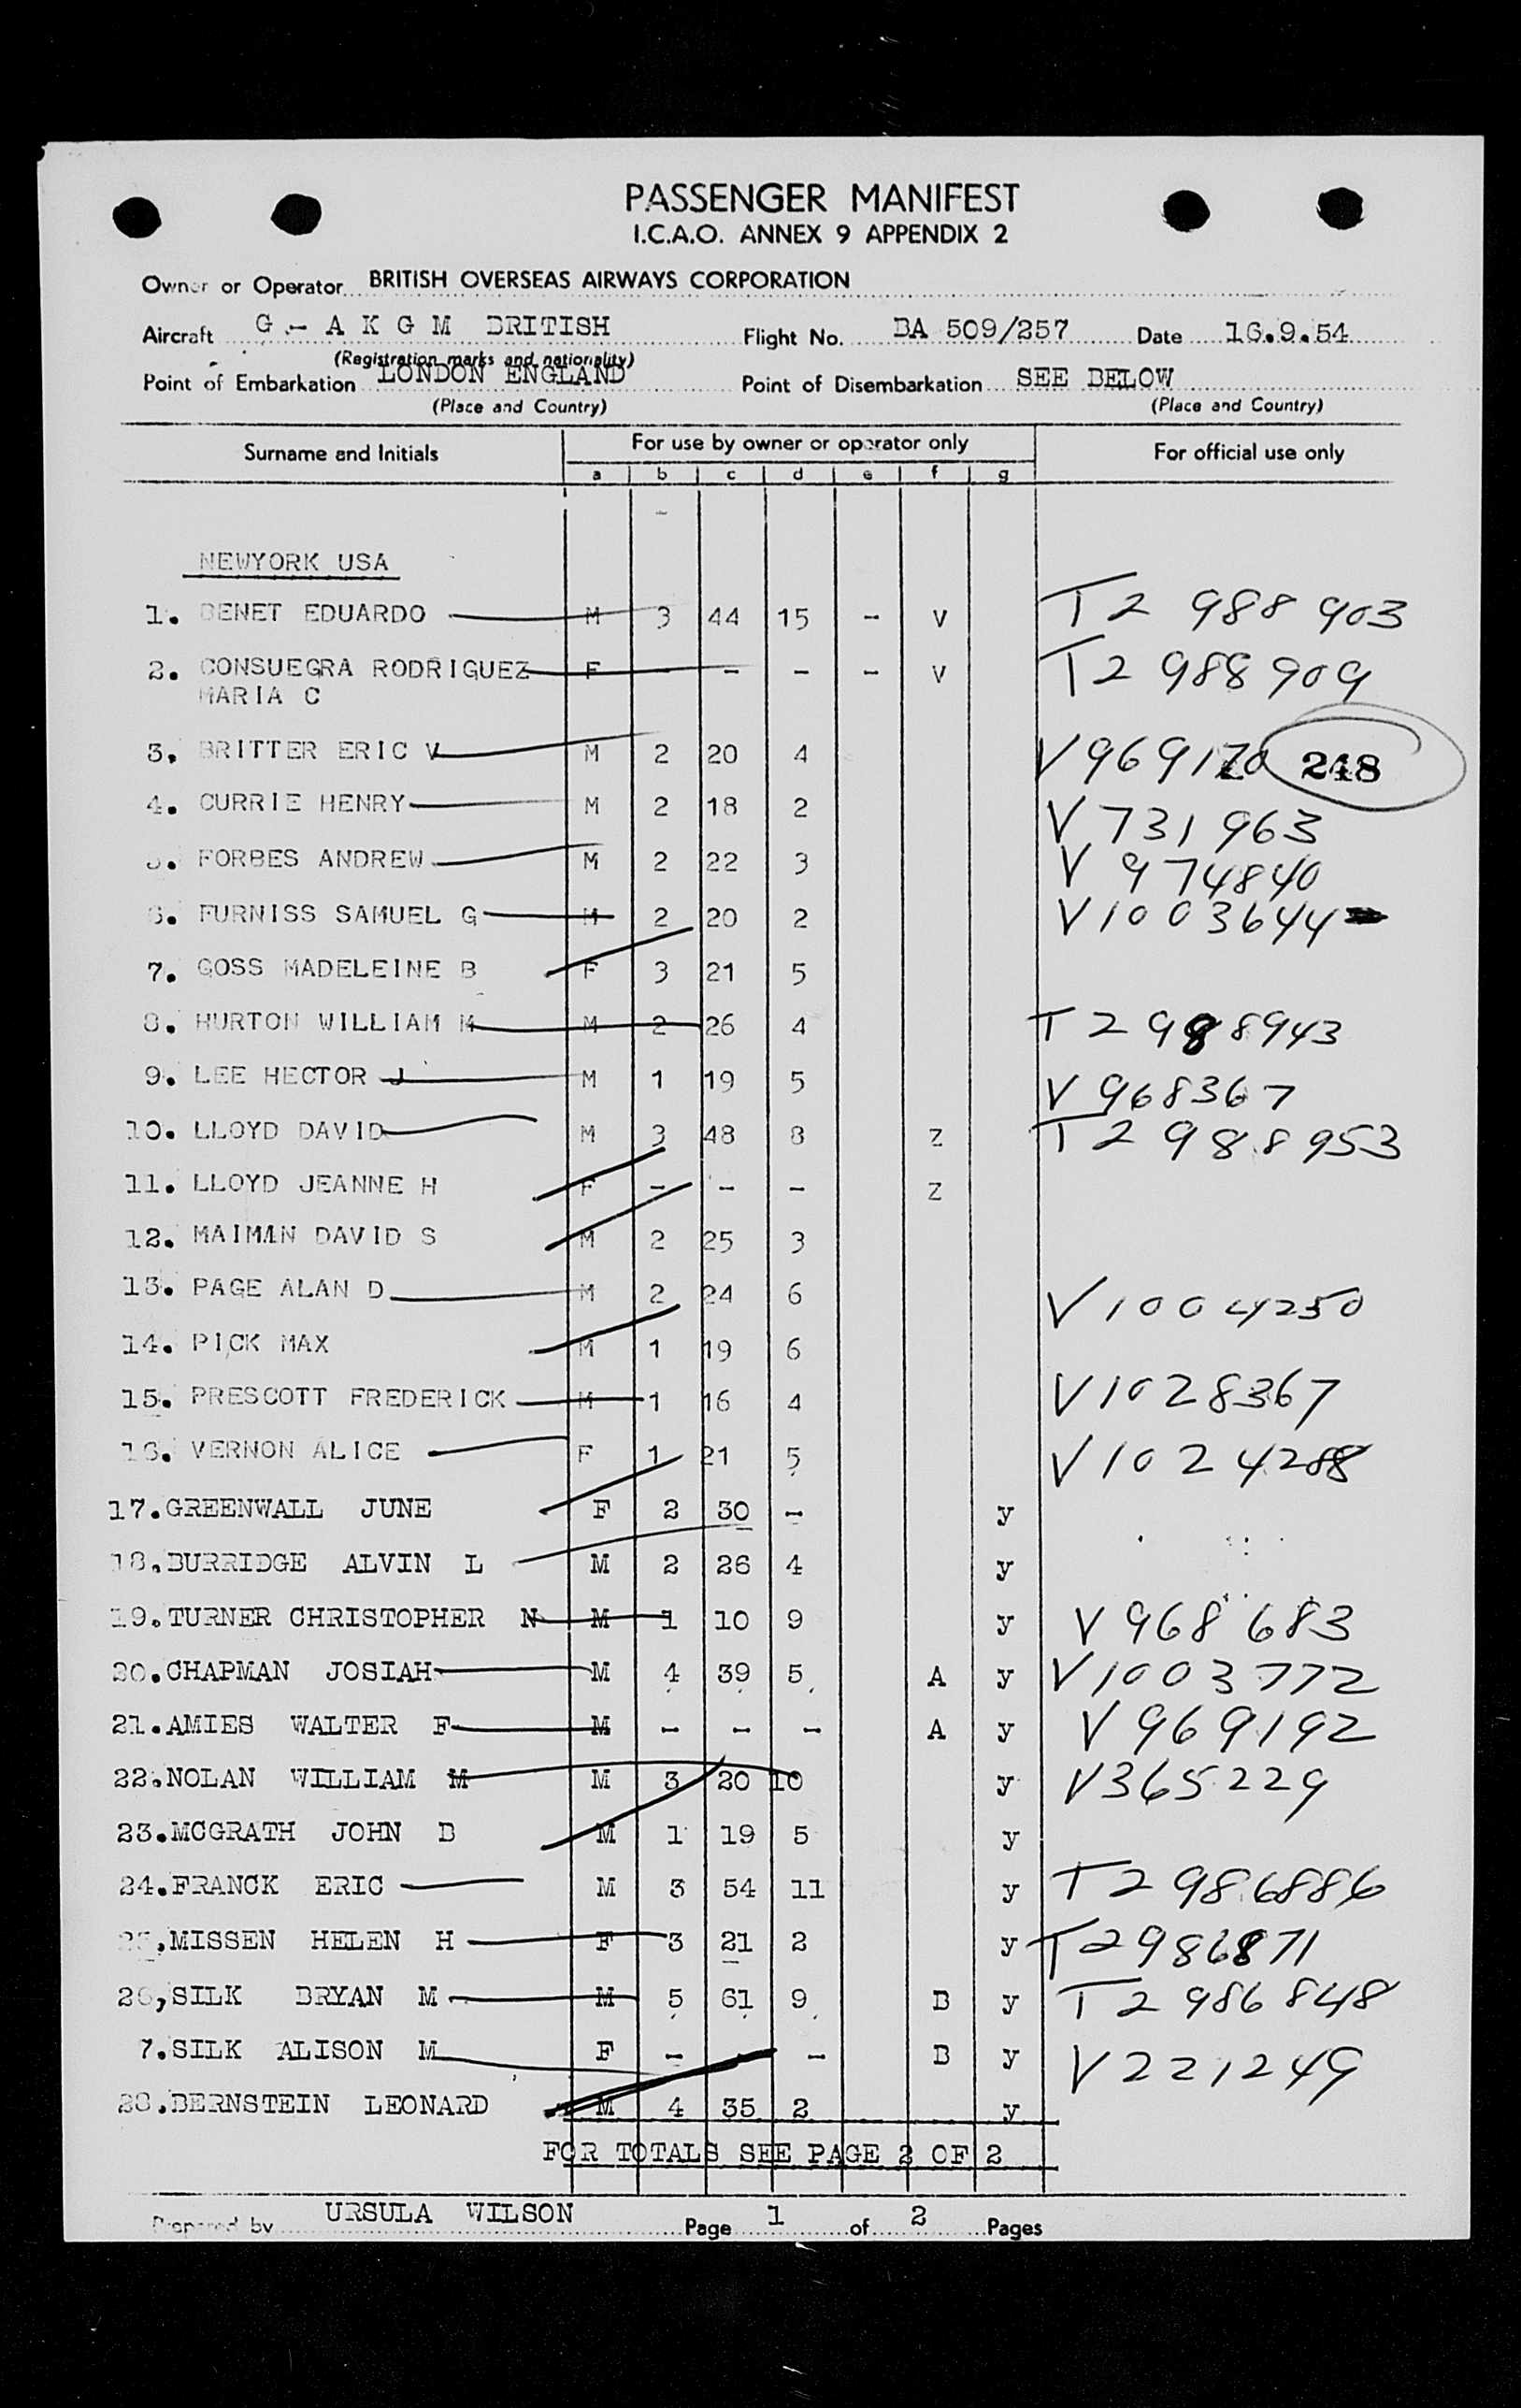 PASSENGER MANIFEST
I.C.A.O. ANNEX 9 APPENDIX 2
Owner or Operator BRITISH OVERSEAS AIRWAYS CORPORATION
Aircraft G - A K G M BRITISH Flight No. BA 509/257 Date 16.9.54
(Registration marks and nationality)
Point of Embarkation LONDON ENGLAND Point of Disembarkation SEE BELOW
(Place and Country) (Place and Country)
Surname and Initials For use by owner or operator only For official use only
a b c d e f g
NEWYORK USA
1. BENET EDUARDO M 3 44 15 - V T2 988 903
2. CONSUEGRA RODRIGUEZ F - - - - V T2 988 909
MARIA C
3. BRITTER ERIC V M 2 20 4 V969170 248
4. CURRIE HENRY M 2 18 2 V 731 963
5. FORBES ANDREW M 2 22 3 V 974840
6. FURNISS SAMUEL G M 2 20 2 V1003644
7. GOSS MADELEINE B F 3 21 5
8. HURTON WILLIAM M M 2 26 4 T 2988943
9. LEE HECTOR J M 1 19 5 V 968367
10. LLOYD DAVID M 3 48 8 Z T2 988953
11. LLOYD JEANNE H F - - - Z
12. MAIMAN DAVID S M 2 25 3
13. PAGE ALAN D M 2 24 6 V1004250
14. PICK MAX M 1 19 6
15. PRESCOTT FREDERICK M 1 16 4 V1028367
16. VERNON ALICE F 1 21 5 V1024288
17. GREENWALL JUNE F 2 30 - y
18. BURRIDGE ALVIN L M 2 26 4 y
19. TURNER CHRISTOPHER N M 1 10 9 y V 968 683
20. CHAPMAN JOSIAH M 4 39 5 A y V1003772
21. AMIES WALTER F M - - - A y V969192
22. NOLAN WILLIAM M M 3 20 10 y V365229
23. MCGRATH JOHN B M 1 19 5 y
24. FRANCK ERIC M 3 54 11 y T2 986886
25, MISSEN HELEN H F 3 21 2 y T2986871
26, SILK BRYAN M M 5 61 9 B y T2 986848
7. SILK ALISON M F - - - B y V221249
28. BERNSTEIN LEONARD M 4 35 2 y
FOR TOTALS SEE PAGE 2 OF 2
Prepared by URSULA WILSON Page 1 of 2 Pages